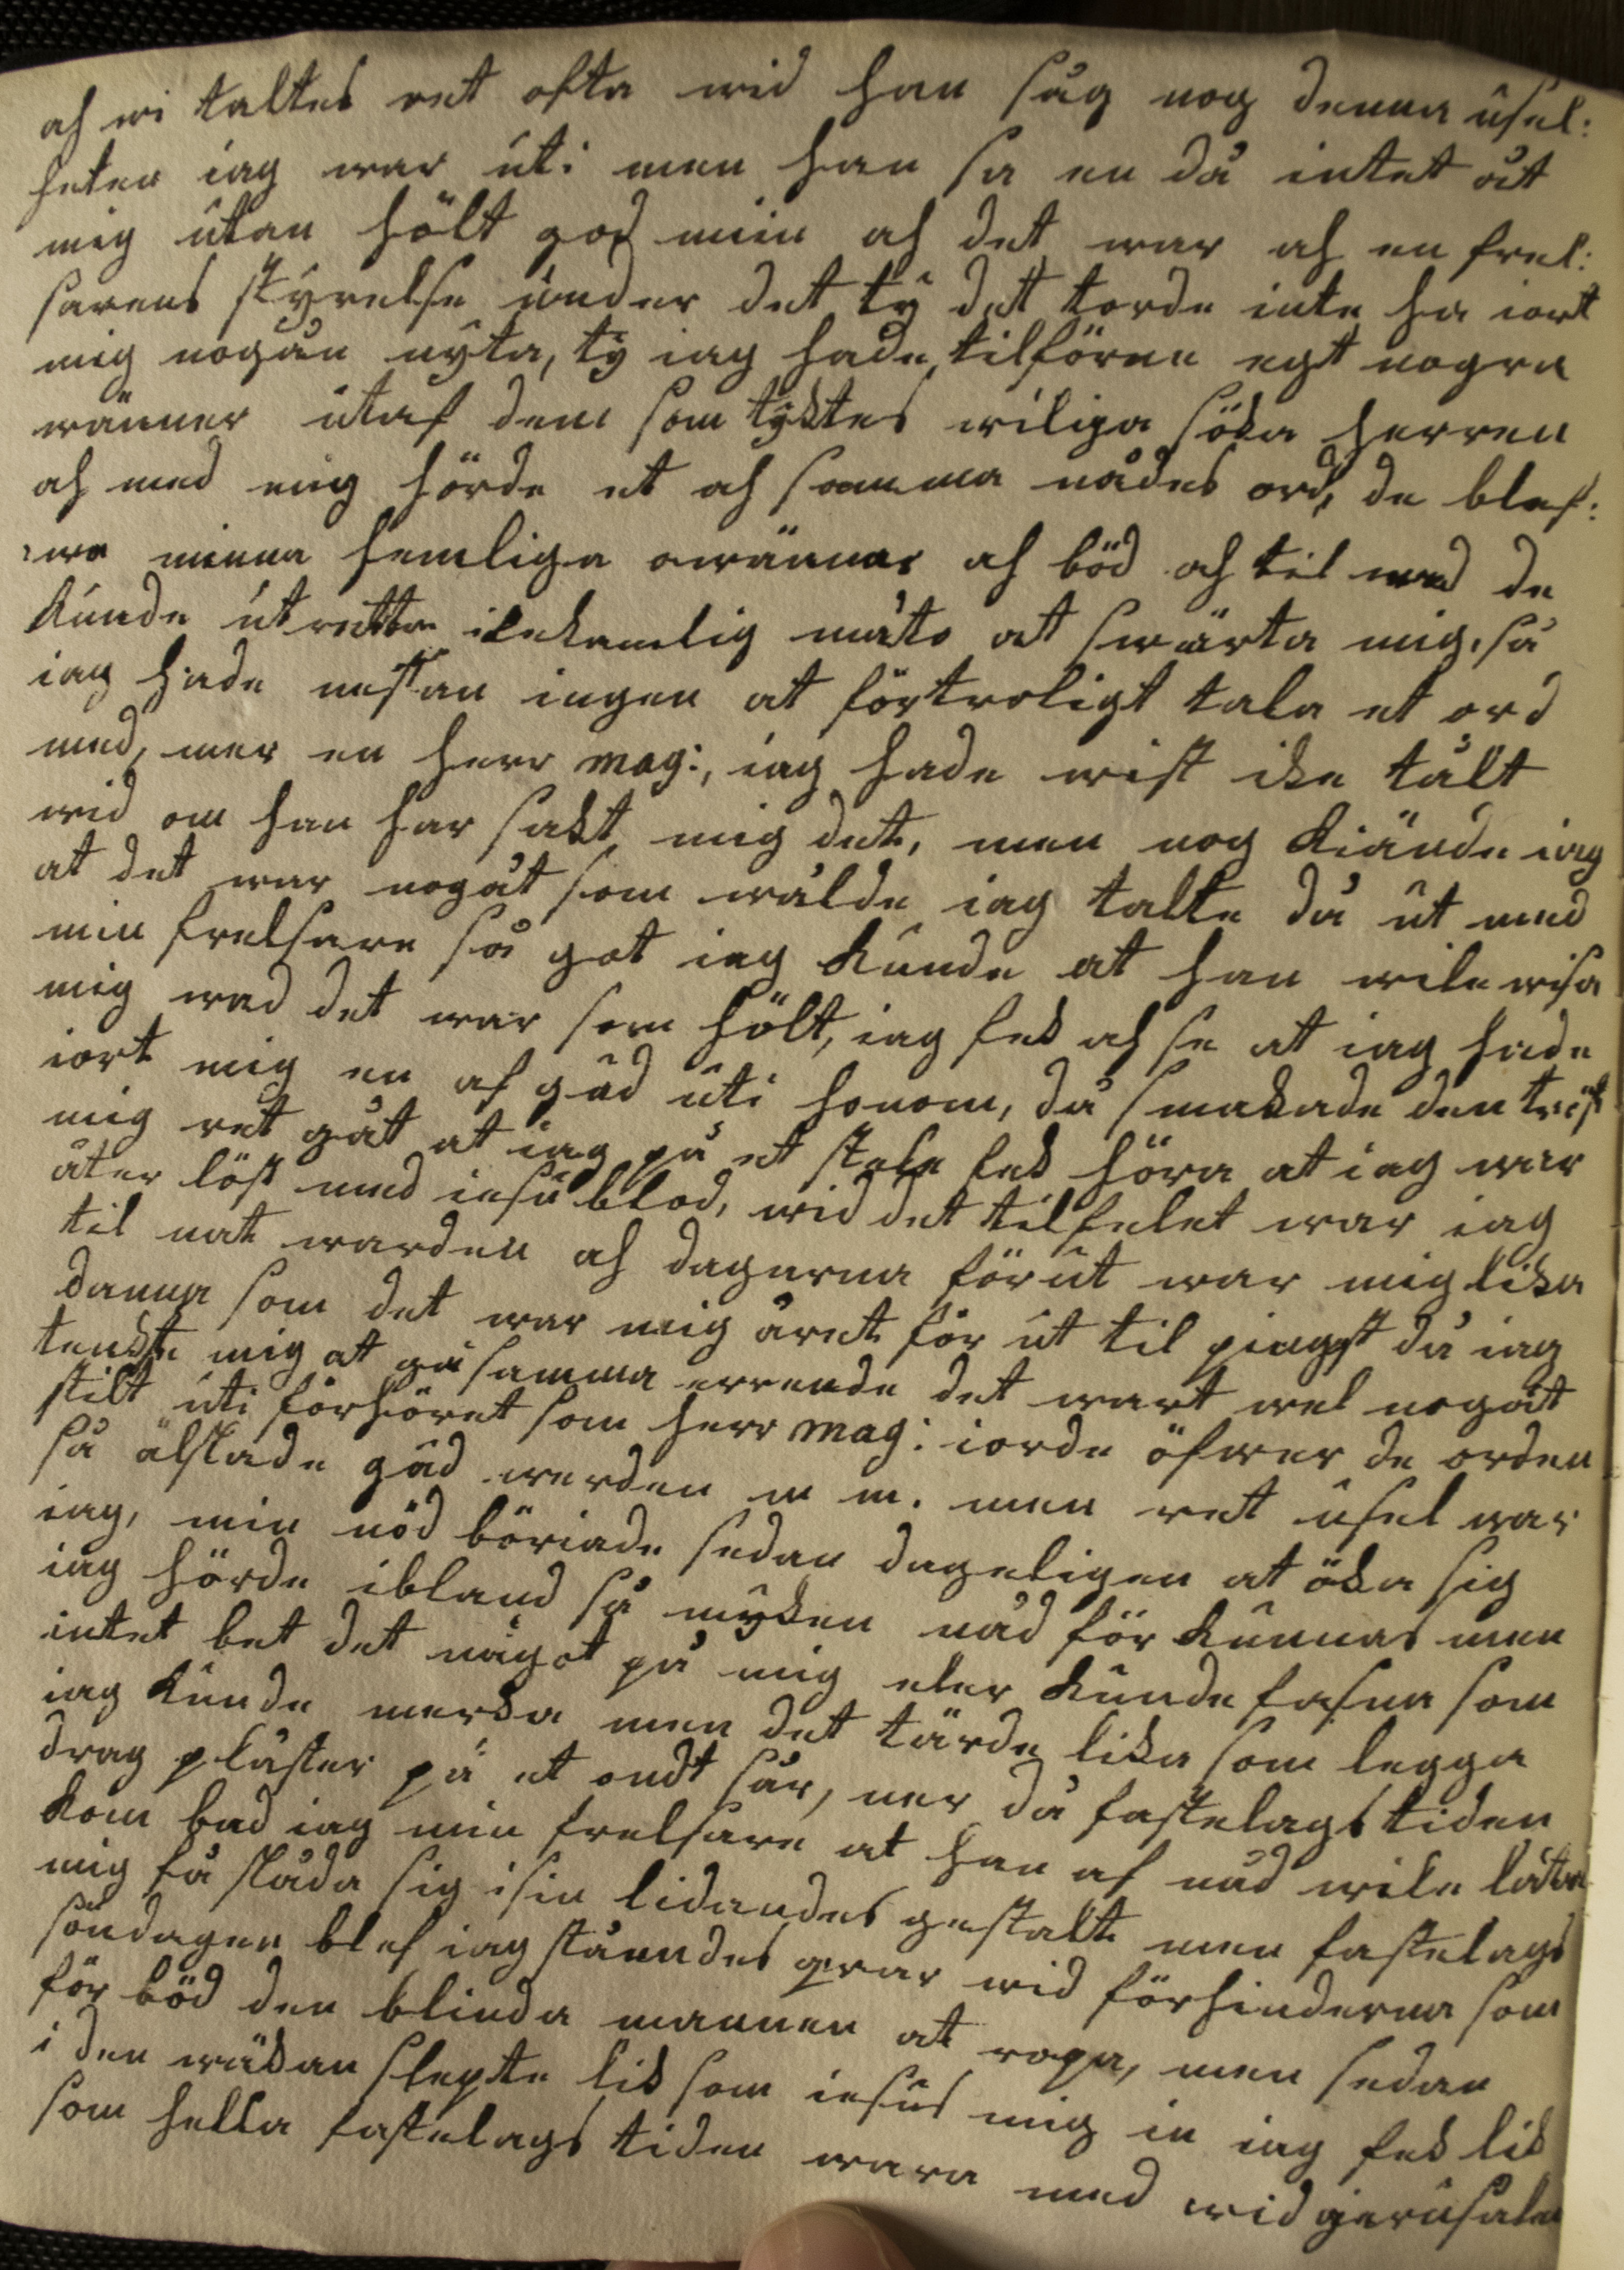 ah wi taltes ret ofta wid han såg nog denna usel:
heter iag war uti men han sa en då intet åt
mig utan hölt god min ah det war ah en frel:
sarens styrelse under det ty det torde inte ha iort
mig nogån nyta, ty iag hade tilförene egt nogra
wänner utaf dem som tyktes wiliga söka herren
ah med mig hörde et ah samma nådes ord, de blef:
:we minna hemliga owänner ah böd ah til wad de
kunde utretta i lekamlig måto at swärta mig, så
iag hade nestan ingen at förtroligt tala et ord
med, mer en herr mag:, iag hade wist ike tålt
wid om han har sakt mig det, men nog kiände iag
at det war nogåt som wålde iag talte då ut med
min frelsare så got iag kunde at han wile wisa
mig wad det war som hölt, iag fek ah se at iag hade
iort mig en af gud uti honom, då smakade den tröst
mig ret gåt at iag på et stele fek höra at iag war
åter löst med iesu blod, wid det tilfelet war iag
til nat warden ah dagarna förut war mig lika
danna som det war mig året för ut til pingst då iag
tenkte mig at gå samma errende det wart wel nogåt
stilt uti förhöret som herr mag: iorde öfwer de orden
så älskade gud werden m m. men ret usel war
iag, min nöd böriade sedan dageligen at öka sig
iag hörde ibland så myken nåd för kunnas men
intet bet det något på mig eler kunde fasna som
iag kunde merka men det tärde lika som legga
drag plåster på et ondt sår, ner då fastelags tiden
kom bad iag min frelsare at han af nåd wile låta
mig få skåda sig i sin lidandes gestalt men fastelags
söndagen blef iag ståendes qwar wid förhinderna som
för böd den blinda mannen at ropa, men sedan
i den wäkan slepte lik som iesus mig in iag fek lik
som hella fastelags tiden wara med wid gerusalem